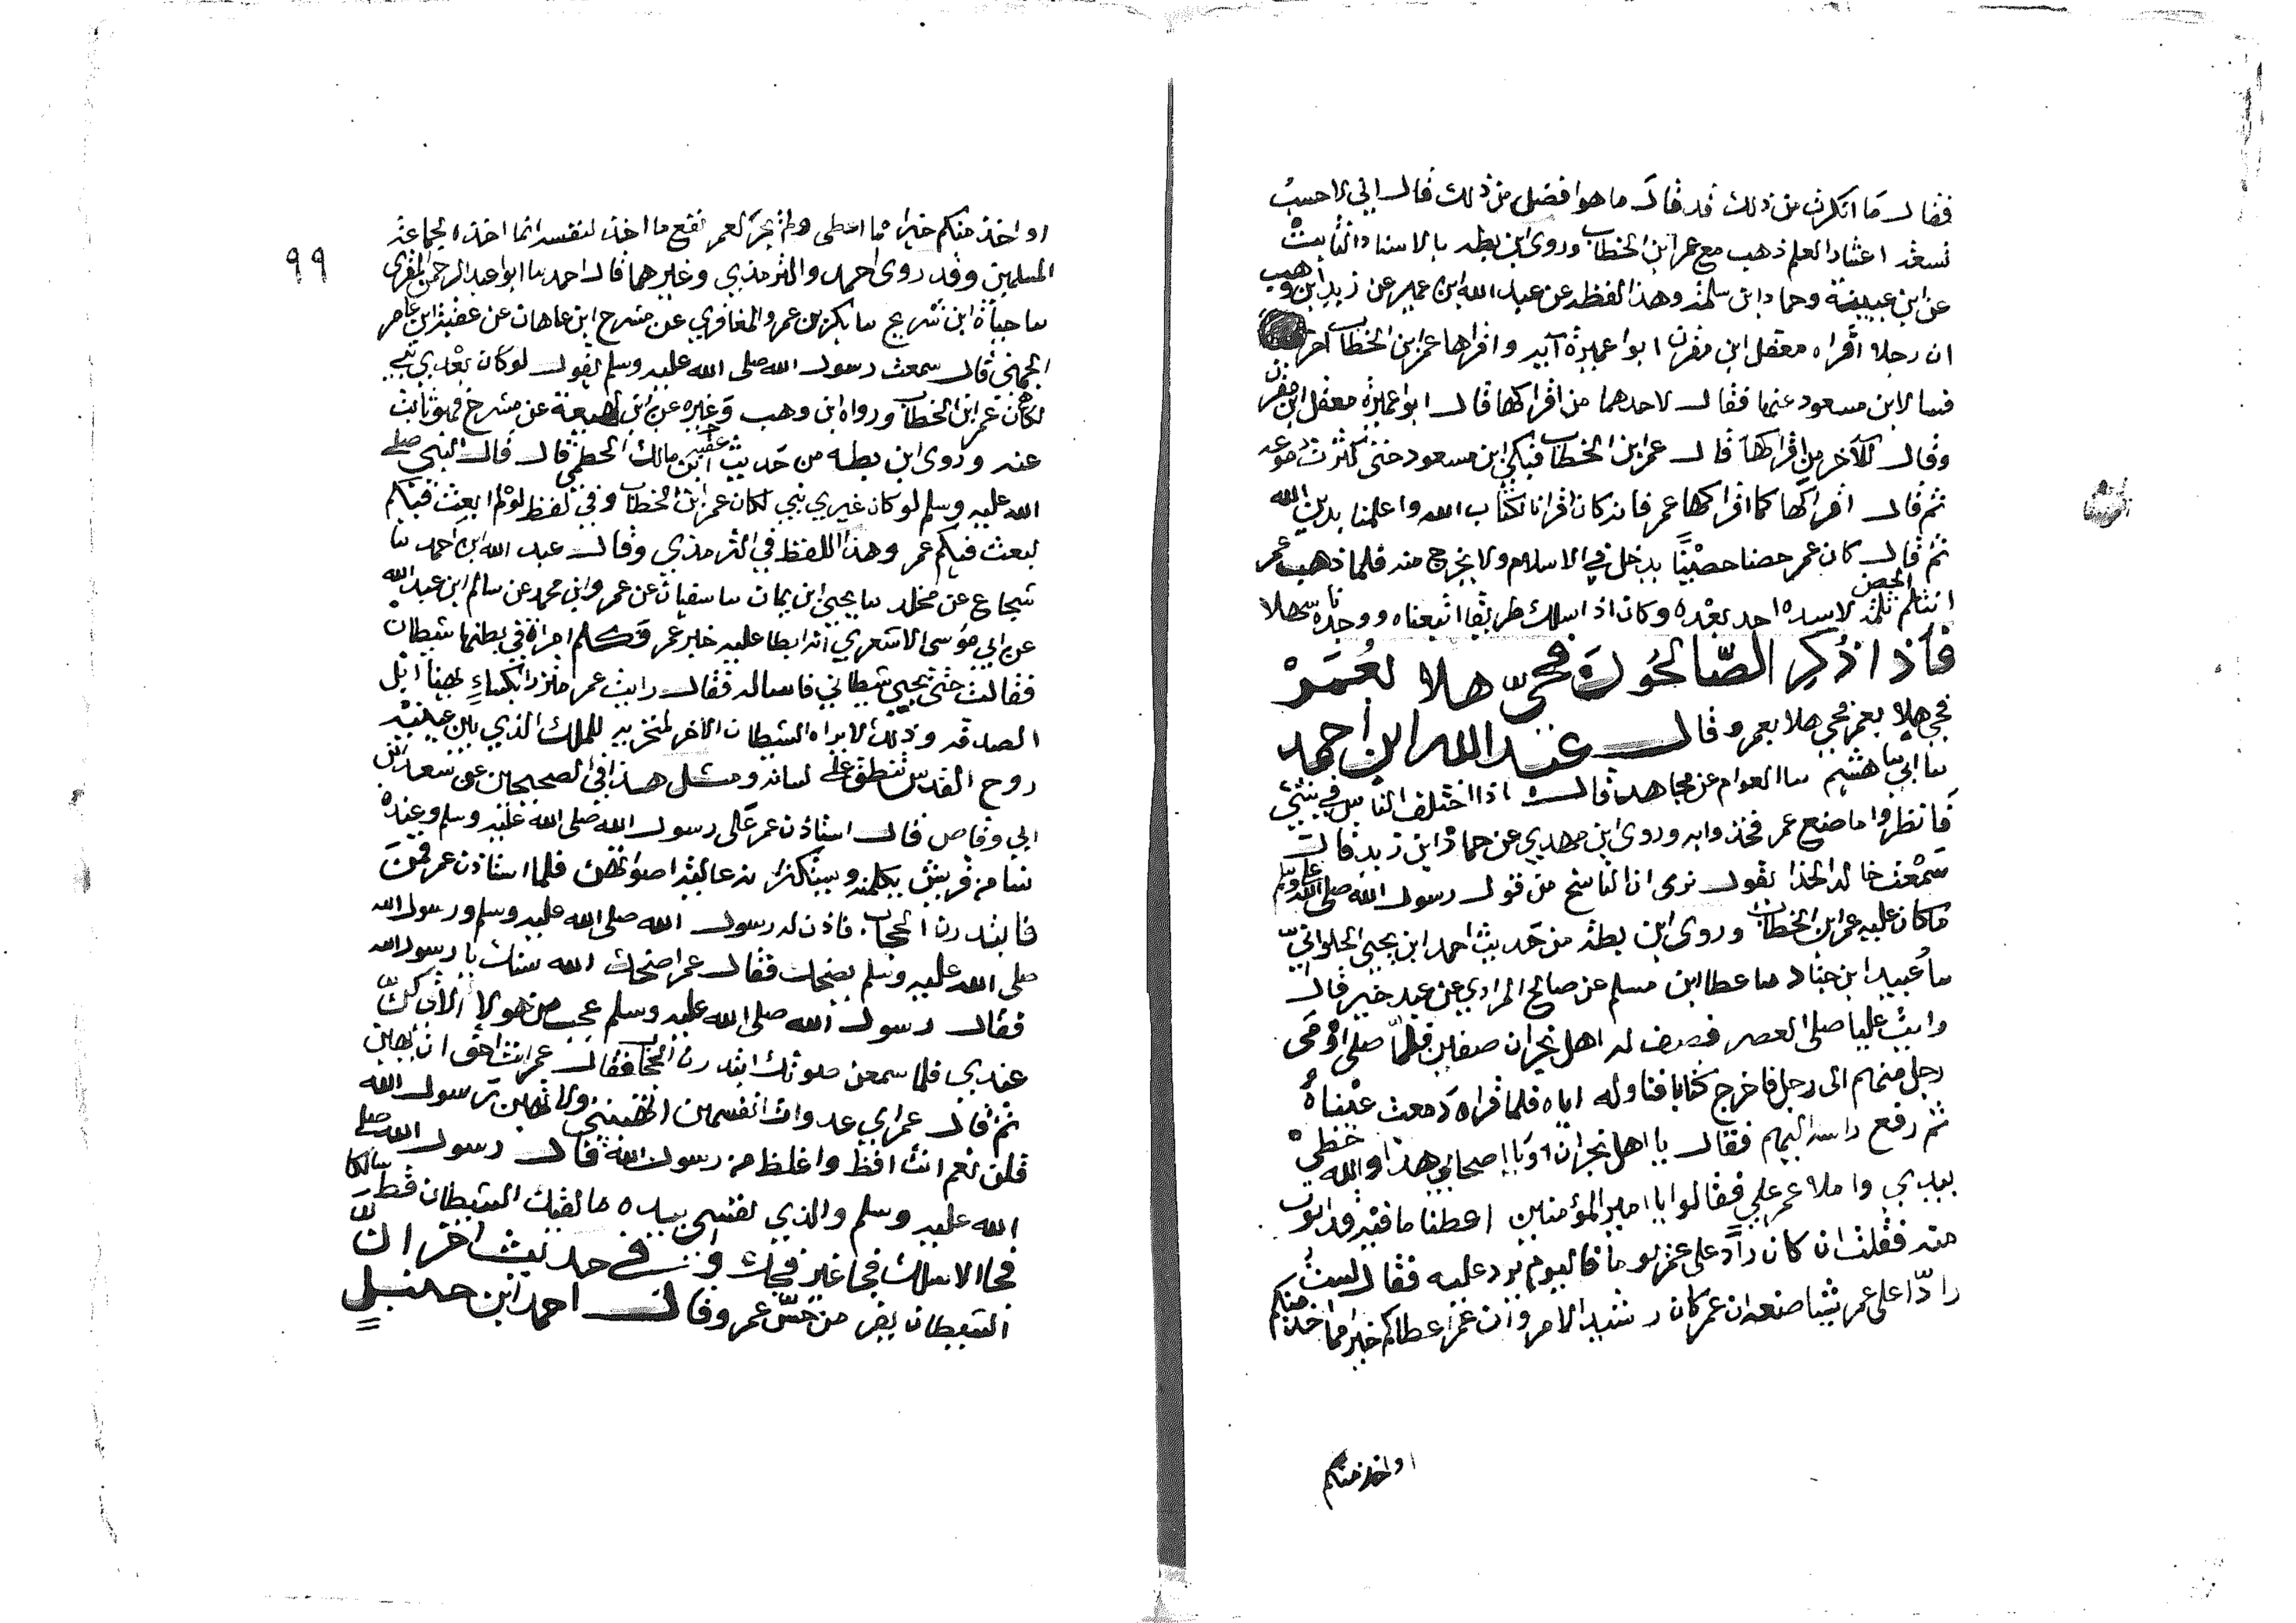 فقال ما انكرت من ذلك قد قال ما هو افضل من ذلك قال اني لاحسب
تسعة اعشار العلم ذهب مع عمر ابن الخطاب وروى ابن بطه بالاسناد الثابت
عن ابن عيينة وحماد ابن سلمة وهذا لفظه عن عبد الله ابن عمير عن زيد ابن وهب
ان رجلا اقراه معقل ابن مقرن ابو اعميرة آيه واقراها عمر ابن الخطاب آخر
فسالا ابن مسعود عنها فقال لاحدهما من اقراكها قال ابو اعميرة معقل ابن مقرن
وقال للآخر من اقراكها قال عمر ابن الخطاب فبكى ابن مسعود حتى كثرت دموعه
ثم قال اقراكها كما اقراكها عمر فانه كان اقرانا لكتاب الله واعلمنا بدين الله
ثم قال كان عمر حصنا حصينا يدخل في الاسلام ولا يخرج منه فلما ذهب عمر
انثلم الحصن ثلمة لا يسده احد بعده وكان اذا سلك طريقا اتبعناه ووجدناه سهلا
فاذا ذكر الصالحون فحي هلا بعمر
فحي هلا بعمر فحي هلا بعمر وقال عبد الله ابن احمد
سا ابي سا هشيم سا العوام عن مجاهد قال اذا اختلف الناس في شي
فانظروا ما صنع عمر فخذوا به وروى ابن مهدي عن حماد ابن زيد قال
سمعت خالد الحذا يقول نرى ان الناسخ من قول رسول الله صلى الله عليه وسلم
ما كان عليه عمر ابن الخطاب وروى ابن بطه من حديث احمد ابن يحيى الحلواني
سا عبيد ابن جناد سا عطا ابن مسلم عن صالح المرادي عن عبد خير قال
رايت عليا صلى العصر فصف له اهل نجران صفين فلما صلى اومى
رجل منهم الى رجل فاخرج كتابا فناوله اياه فلما قراه دمعت عيناه
ثم رفع راسه اليهم فقال يا اهل نجران او يا اصحابي هذا والله خطي
بيدي واملا عمر علي فقالوا يا امير المؤمنين اعطنا ما فيه فدنوت
منه فقلت ان كان رادا على عمر يوما فاليوم يرد عليه فقال لست
رادا على عمر شيا صنعه ان عمر كان رشيد الامر وان عمر اعطاكم خيرا مما اخذ منكم
او اخذ منكم
٩٩
او اخذ منكم خيرا مما اعطى ولم يجر لعمر نفع ما اخذ لنفسه انما اخذه لجماعة
المسلمين وقد روى احمد والترمذي وغيرهما قال احمد سا ابو اعبد الرحمن المقري
سا حياة ابن شريح سا بكر بن عمرو المغافري عن مشرح ابن عاهان عن عقبة ابن عامر
الجهني قال سمعت رسول الله صلى الله عليه وسلم يقول لو كان بعدي نبي
لكان عمر ابن الخطاب ورواه ابن وهب وغيره عن ابن لهيعة عن مشرح فهو ثابت
عنه وروى ابن بطه من حديث عقبة ابن مالك الخطمي قال قال النبي صلى
الله عليه وسلم لو كان غيري نبي لكان عمر ابن الخطاب وفي لفظ لو لم ابعث فيكم
لبعث فيكم عمر وهذا اللفظ في الترمذي وقال عبد الله ابن احمد سا
شجاع عن مخلد سا يحيى ابن يمان سا سفيان عن عمرو ابن محمد عن سالم ابن عبد الله
عن ابي موسى الاشعري انه ابطا عليه خبر عمر فكلم امراة في بطنها شيطان
فقالت حتى يجيي شيطاني فاساله فقال رايت عمر متزرا بكساء يهنا ابل
الصدقه وذلك لا يراه الشيطان الا خر لمنخريه للملك الذي بين عينيه
روح القدس تنطق على لسانه ومثل هذا في الصحيحين عن سعد ابن
ابي وقاص قال استاذن عمر على رسول الله صلى الله عليه وسلم وعنده
نسا من قريش يكلمنه ويستكثرنه عالية اصواتهن فلما استاذن عمر قمن
فابتدرن الحجاب فاذن له رسول الله صلى الله عليه وسلم ورسول الله
صلى الله عليه وسلم يضحك فقال عمر اضحك الله سنك يا رسول الله
فقال رسول الله صلى الله عليه وسلم عجبت من هولا اللاتي كن
عندي فلما سمعن صوتك ابتدرن الحجاب فقال عمر انت احق ان يهبن
ثم قال عمر اي عدوات انفسهن اتهبنني ولا تهبن رسول الله
قلن نعم انت افظ واغلظ من رسول الله قال رسول الله صلى
الله عليه وسلم والذي نفسي بيده ما لقيك الشيطان قط سالكا
فجا الا سلك فجا غير فجك وفي حديث اخر ان
الشيطان يفر من حس عمر وقال احمد ابن حنبل